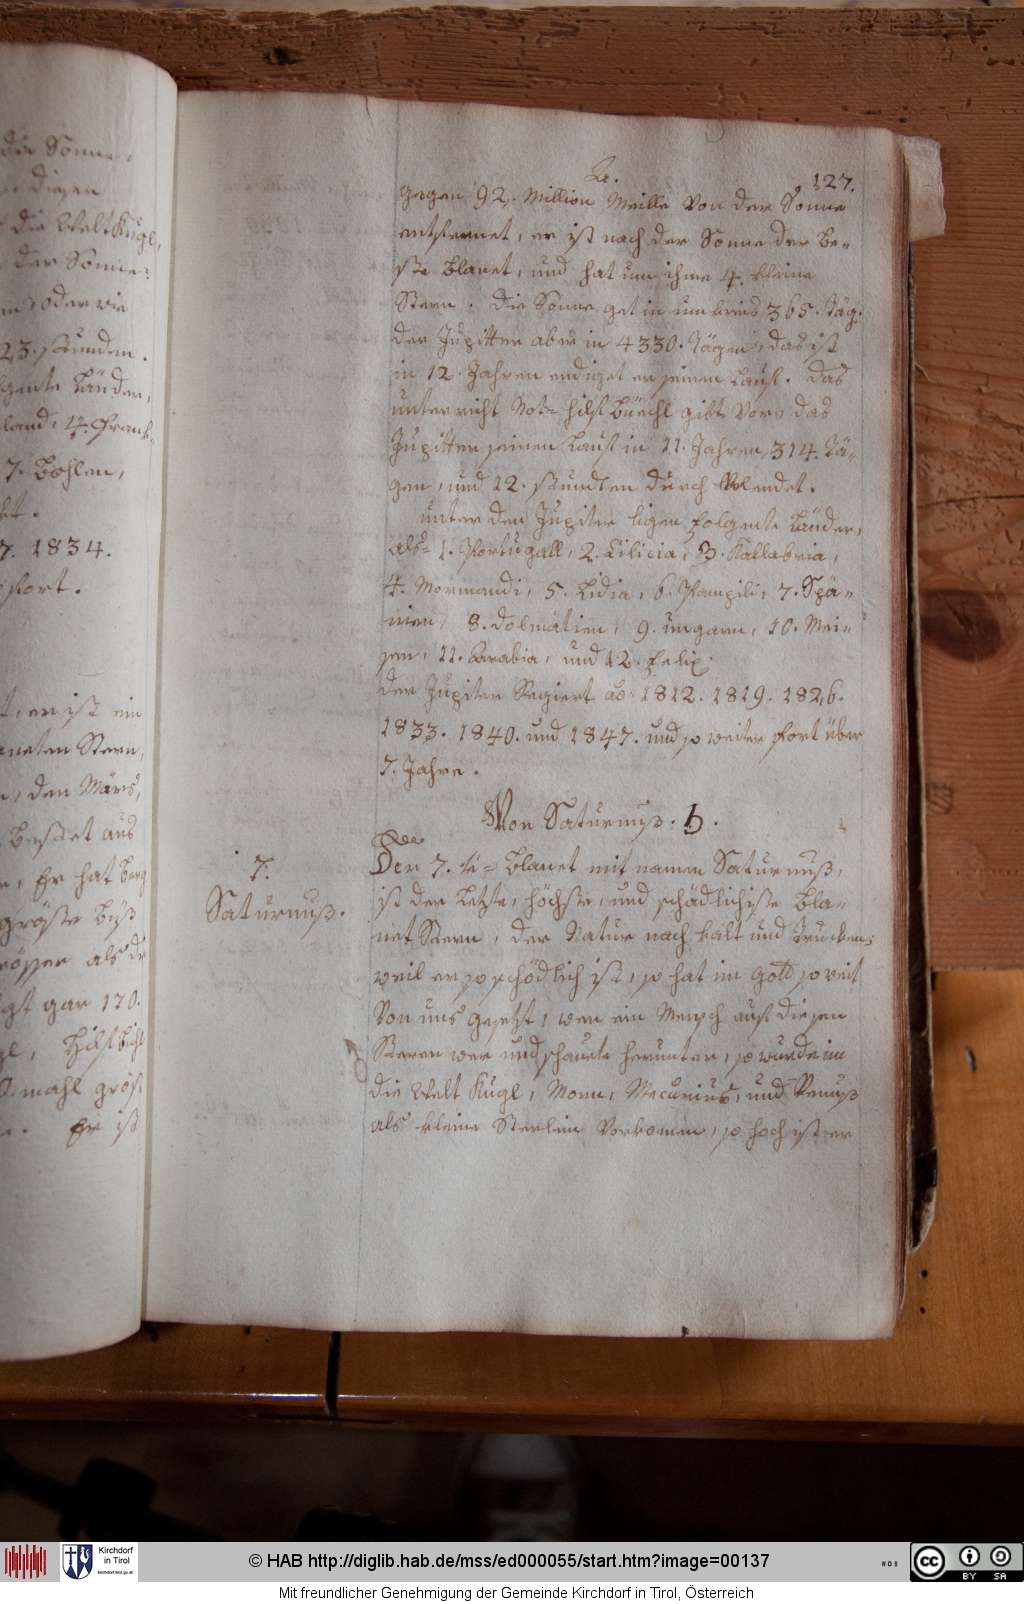 die Sonne
diesen
die Welt Kugl,
der Sonne:
oder wie
23. stunden.
Länder,
land, 4. Frank-
7. Bohlen,
7. 1834.
fort.
er ist ein
neten Stern,
den Märs,
Er hat berg
gröste büß
grösser als
gar 170.
mahl gröss
Er ist
127.
gegen 92. Million Meille von der Sonne
entfernet, er ist nach der Sonne der be-
ste blanet, und hat um ihme 4. kleine
Stern. die Sonne get in um kreis 365. Täg.
der Jupitter aber in 4330. Tägen, das ist
in 12. Jahren endiget er seinen Lauf. das
unterricht Not= hilf büechl gibt vor, das
Jupitter seinen Lauf in 11. Jahren, 314. Tä-
gen, und 12. stunden durch Vlendet.
unter den Jupiter ligen folgente Länder,
als= 1. Portugall, 2. Cilicia, 3. Kallabria,
4. Normandi, 5. Lidia, 6. Pampili, 7. Spä-
nien, 8. dolmätien, 9. ungarn, 10. Mei-
sen, 11. Arabia, und 12. Felix.
der Jupiter Regiert ao: 1812. 1819. 1826.
1833. 1840. und 1847. und so weiter fort über
7. Jahre.
Von Saturnuß. ♄.
7.
Saturnuß.
Der
Den 7. te= blanet mit namen Saturnuß,
ist der letzte, höchste, und schädlichiste bla-
net Stern, der Natur nach kalt und Trucken,
weil er so schödlich ist, so hat im Gott so weit
Von uns gesetzt, wen ein Mensch auf diesen
Steren wer und schauete herunter, so wurde im
die Welt Kugl, Monn, Mecurius, und Venuß
als kleine Sterlein Vorkomen, so hoch ist er
© HAB http://diglib.hab.de/mss/ed000055/start.htm?image=00137
Kirchdorf
in Tirol
kirchdorf.tirol.gv.at
WDB
cc BY SA
Mit freundlicher Genehmigung der Gemeinde Kirchdorf in Tirol, Österreich